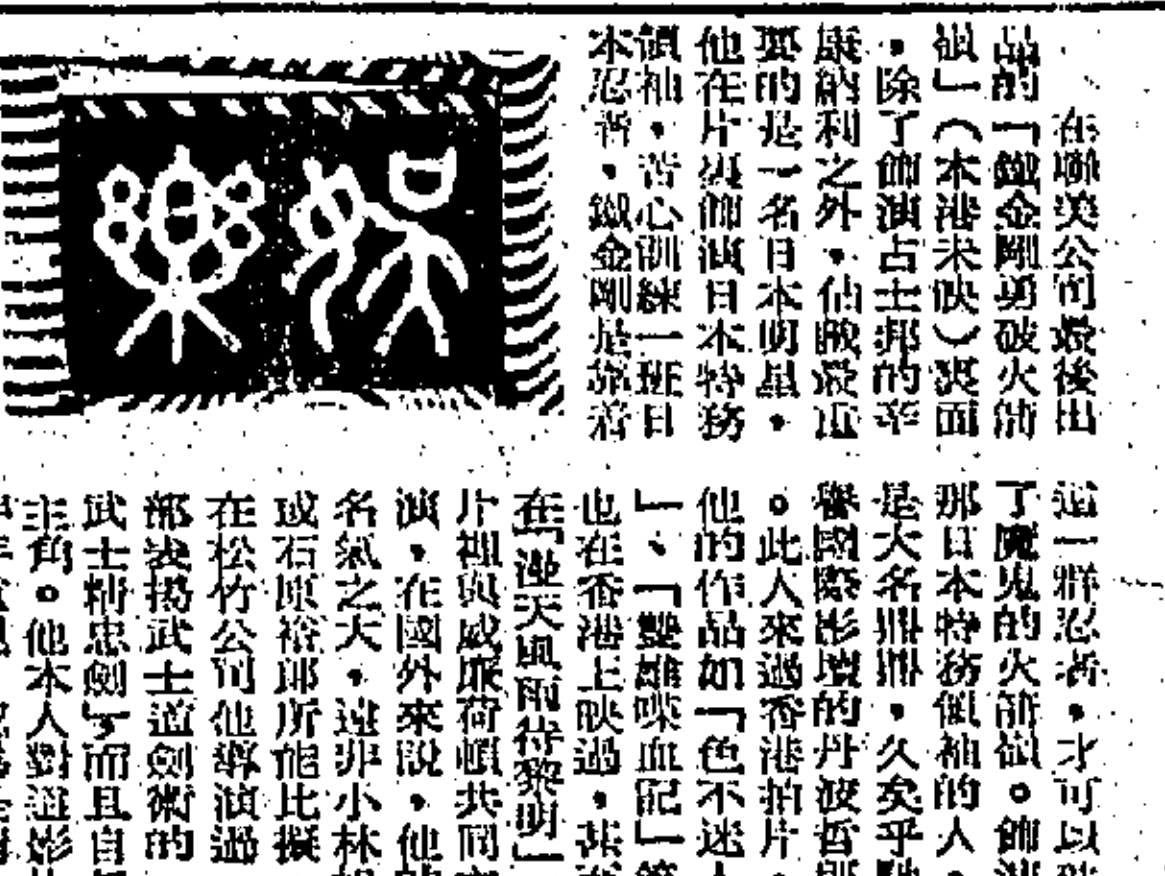 在聯美公司最後出
品的「鐵金剛勇破火箭
嶺」(本港未映)裏面
，除了飾演占士邦的辛
康納利之外，佔戲最重
要的是一名日本明星，
他在片裏飾演日本特務
領袖，苦心訓練一班日
本忍者，鐵金剛是靠着
這一群忍者，才可以
了魔鬼的火箭嶺。飾演
那日本特務領袖的人，
是大名鼎鼎，久矣乎馳
譽國際影壇的丹波哲郎
。此人來過香港拍片，
他的作品如「色不迷人
」、「雙雄喋血記」等
也在香港上映過，甚
在「溼天風雨待黎明」
片裡與威廉荷頓共同
演，在國外來說，他
名氣之大，遠非小林
或石原裕郎所能比擬
在松竹公司他導演過
部表揚武士道劍術的
武士精忠劍」而且自
主角。他本人對這影